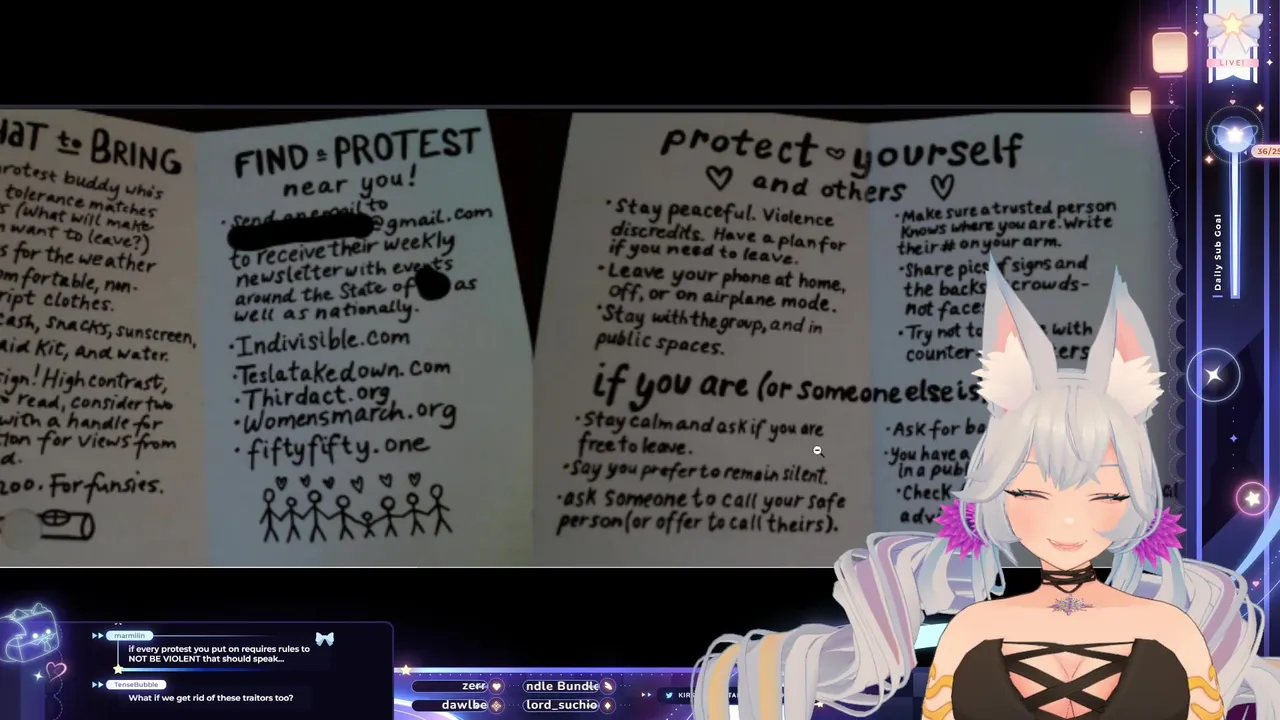 HAT to BRING
rotest buddy who's
tolerance matches
s (what will make
want to leave?)
s for the weather
omfortable, non-
ript clothes.
cash, snacks, sunscreen,
aid kit, and water.
sign! High contrast,
read, consider two
with a handle for
tion for views from
d.
zoo. For funsies.
FIND a PROTEST
near you!
• Send an email to
@gmail.com
to receive their weekly
newsletter with events
around the State of as
well as nationally.
• Indivisible.com
• Teslatakedown.com
• Thirdact.org
• Womensmarch.org
• fiftyfifty.one
protect yourself
and others
• Stay peaceful. Violence
discredits. Have a plan for
if you need to leave.
• Leave your phone at home,
off, or on airplane mode.
• Stay with the group, and in
public spaces.
• Make sure a trusted person
knows where you are. Write
their # on your arm.
• Share pics of signs and
the backs crowds-
not faces
• Try not to with
counter ers
if you are (or someone else is
• Stay calm and ask if you are
free to leave.
• Say you prefer to remain silent.
• ask someone to call your safe
person (or offer to call theirs).
• Ask for ba
• You have a
in a publ
• Check
adv
LIVE!
36/25
Daily Sub Goal
marmilin
if every protest you put on requires rules to
NOT BE VIOLENT that should speak...
TenseBubble
What if we get rid of these traitors too?
zerr
ndle Bundle
dawlbe
lord_suchio